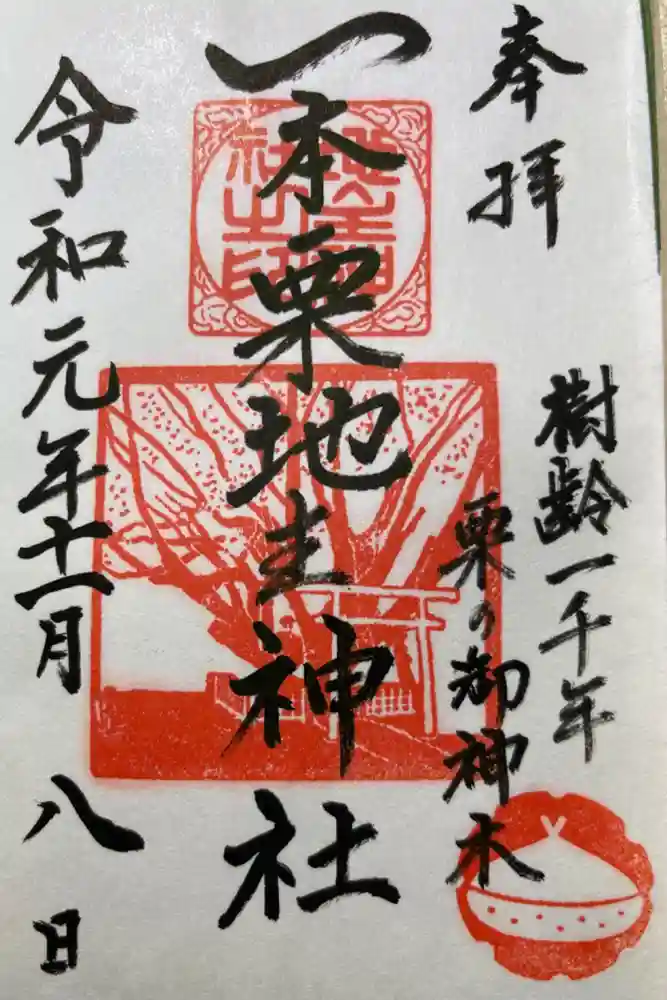 奉拝
樹齢一千年
栗の御神木
一本栗地主神社
地主神
社之印
令和元年十一月八日